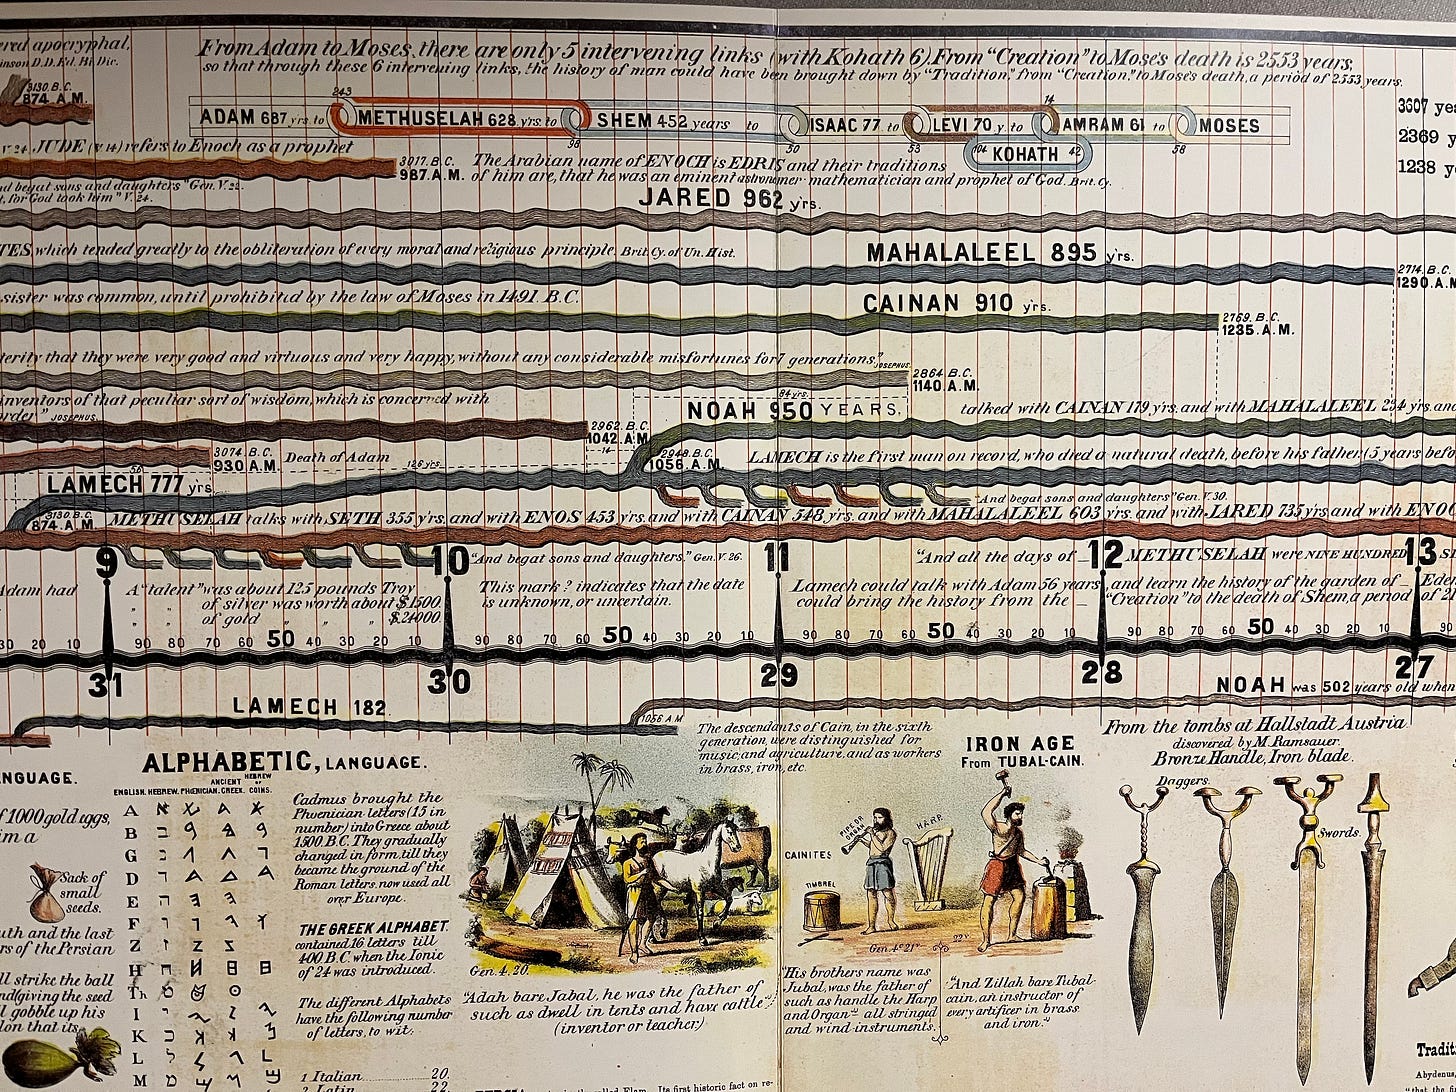 ered apocryphal,
inson D.D. Ed. Bi. Dic.
From Adam to Moses, there are only 5 intervening links (with Kohath 6) From "Creation" to Moses death is 2553 years,
so that through these 6 intervening links, the history of man could have been brought down by "Tradition," from "Creation," to Moses death, a period of 2553 years.
3130. B.C.
874. A.M.
243
14
ADAM 687 yrs. to METHUSELAH 628 yrs. to SHEM 452 years to ISAAC 77 to LEVI 70 y. to AMRAM 61 to MOSES
98 50 53 58
KOHATH 42
3607 yea
2369 y
1238 ye
V. 24. JUDE (v. 14) refers to Enoch as a prophet
3017. B.C.
987. A.M.
The Arabian name of ENOCH is EDRIS and their traditions
of him are, that he was an eminent astronomer mathematician and prophet of God. Brit. Cy.
nd begat sons and daughters" Gen. V. 22.
t, for God took him" V. 24.
JARED 962 yrs.
TES, which tended greatly to the obliteration of every moral and religious principle. Brit. Cy. of Un. Hist.
MAHALALEEL 895 yrs.
2714. B.C.
1290. A.M
sister was common, until prohibited by the law of Moses in 1491. B.C.
CAINAN 910 yrs.
2769. B.C.
1235. A.M.
terity that they were very good and virtuous and very happy, without any considerable misfortunes for 7 generations,"
JOSEPHUS
2864. B.C.
1140. A.M.
inventors of that peculiar sort of wisdom, which is concerned with
order" JOSEPHUS.
84 yrs.
NOAH 950 YEARS.
talked with CAINAN 179 yrs. and with MAHALALEEL 234 yrs. and
2962. B.C.
1042. A.M.
14
3074. B.C.
930 A.M.
Death of Adam
126 yrs.
2948. B.C.
1056. A.M.
LAMECH is the first man on record, who died a natural death, before his father (5 years befo
56
LAMECH 777 yrs.
"And begat sons and daughters" Gen. V. 30.
3130. B.C.
874. A.M.
METHUSELAH talks with SETH 355 yrs. and with ENOS 453 yrs. and with CAINAN 548 yrs. and with MAHALALEEL 603 yrs. and with JARED 735 yrs and with ENOC
9 10 11 12 13
"And begat sons and daughters." Gen. V. 26.
"And all the days of
METHUSELAH were NINE HUNDRED
Adam had
A "talent" was about 125 pounds Troy
" " of silver was worth about $1500.
" " of gold " " " $24000.
This mark ? indicates that the date
is unknown, or uncertain.
Lamech could talk with Adam 56 years, and learn the history of the garden of Eden
could bring the history from the "Creation" to the death of Shem, a period of 21
30 20 10 90 80 70 60 50 40 30 20 10 90 80 70 60 50 40 30 20 10 90 80 70 60 50 40 30 20 10 90 80 70 60 50 40 30 20 10 90
31 30 29 28 27
LAMECH 182.
1056 A.M
NOAH was 502 years old when
NGUAGE.
f 1000 gold eggs,
im a
Sack of
small
seeds.
uth and the last
rs of the Persian
ll strike the ball
nd giving the seed
l gobble up his
lon that its
ALPHABETIC, LANGUAGE.
ENGLISH. HEBREW. PHŒNICIAN. ANCIENT GREEK. HEBREW OF COINS.
A
B
G
D
E
F
Z
H
Th
I
K
L
M
Cadmus brought the
Phœnician letters (15 in
number) into Greece about
1500 B.C. They gradually
changed in form, till they
became the ground of the
Roman letters, now used all
over Europe.
THE GREEK ALPHABET.
contained 16 letters till
400 B.C. when the Ionic
of 24 was introduced.
The different Alphabets
have the following number
of letters, to wit:
1 Italian 20.
2 Latin 22.
Gen. 4. 20.
"Adah bare Jabal, he was the father of
such as dwell in tents and have cattle"
(inventor or teacher.)
The descendants of Cain, in the sixth
generation, were distinguished for
music, and agriculture, and as workers
in brass, iron, etc.
IRON AGE
From TUBAL-CAIN.
PIPE OR ORGAN
HARP.
CAINITES
TIMBREL
Gen. 4. 21" 22 v.
"His brothers name was
Jubal, was the father of
such as handle the Harp
and Organ" all stringed
and wind instruments.
"And Zillah bare Tubal-
cain, an instructor of
every artificer in brass
and iron."
From the tombs at Hallstadt Austria
discovered by M. Ramsauer.
Bronze Handle, Iron blade.
Daggers.
Swords.
Traditi
Abydenus,
called Elam. Its first historic fact on re-
"that the